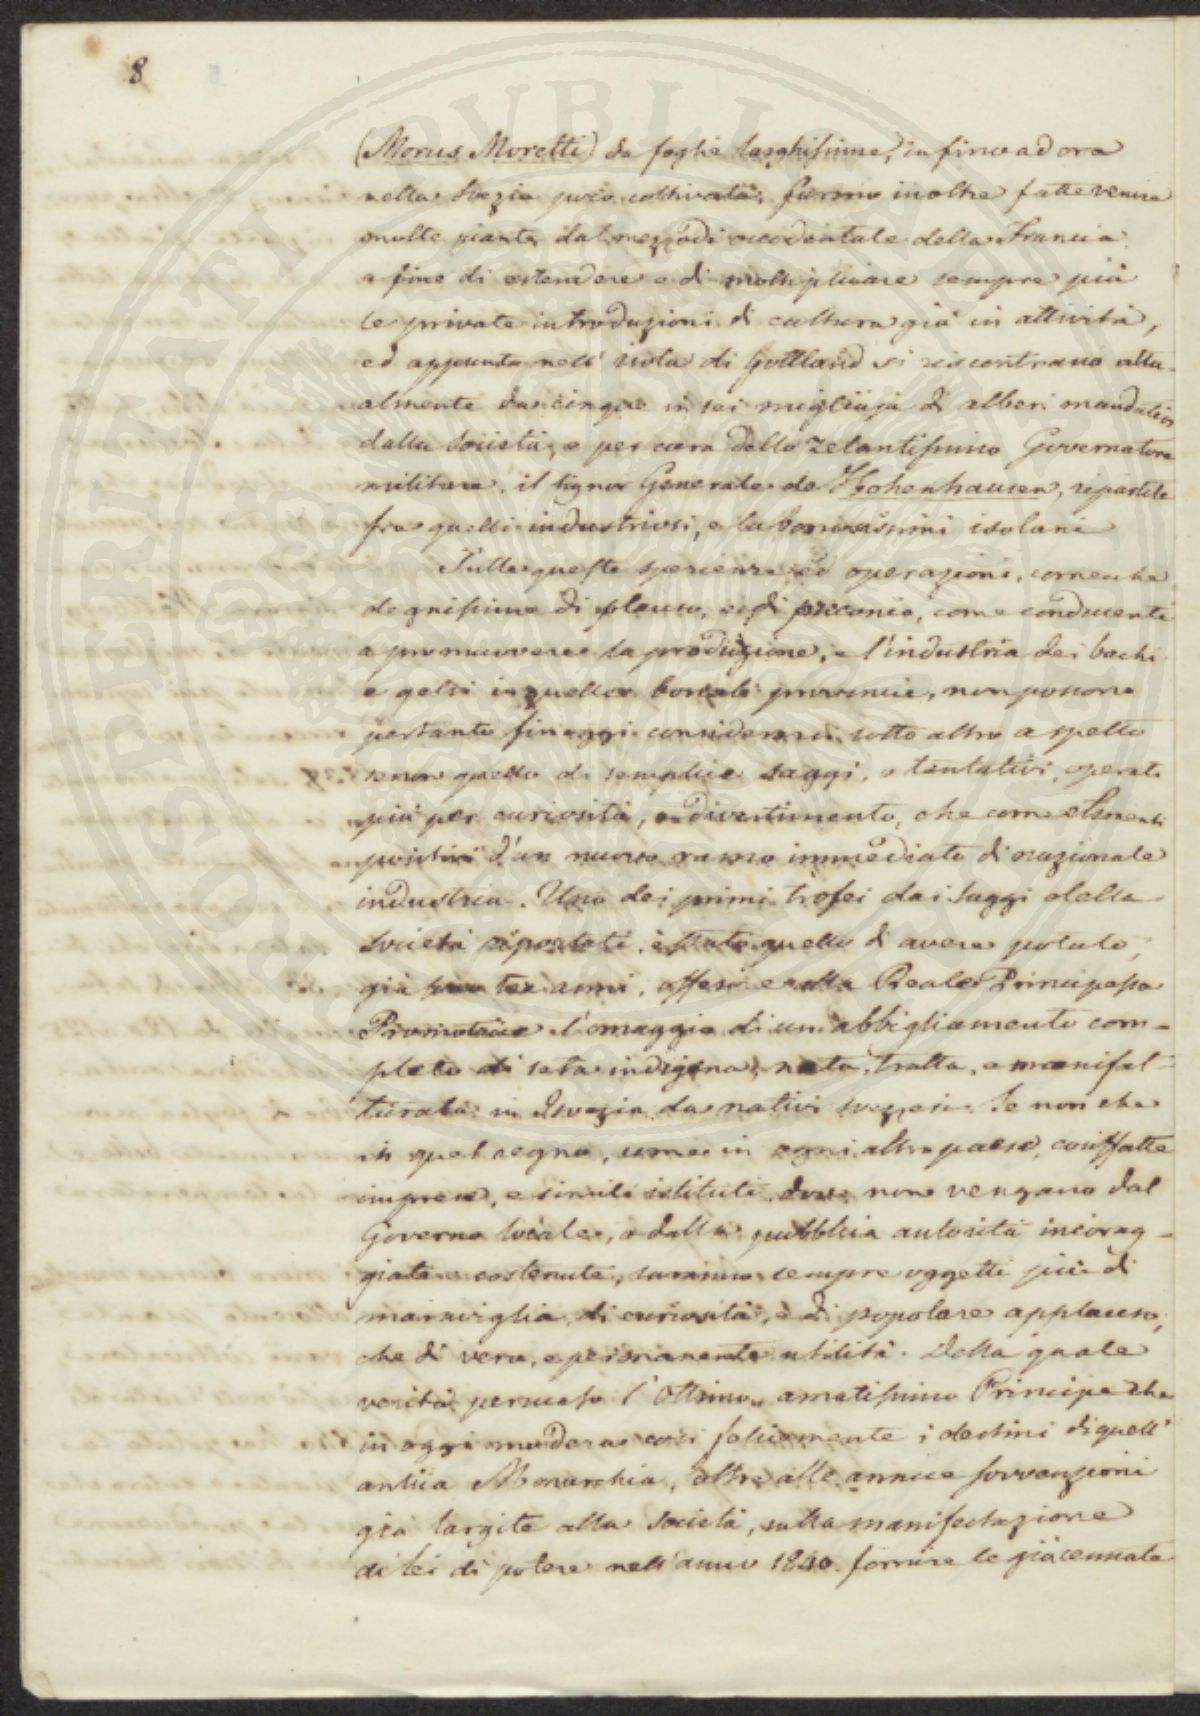 8
(Morus Moretti) da foglie larghissime, in fino ad ora
nella Svezia poco coltivata, furono inoltre fatte venire
molte piante dal mezzodi occidentale della Francia
a fine di estendere e di moltiplicare sempre più
le private introduzioni di cultura già in attività,
ed appunto nell' isola di Gottland si riscontrano attu-
almente da cinque in sei migliaja di alberi mandativi
dalla Società, e per cura dello zelantissimo Governatore
militare, il Signor Generale de Hohenhausen, ripartite
fra quelli industriosi, e laboriosissimi isolani
Tutte queste sperienze ed operazioni, comeche
degnissime di plauso, e di preconio, come conducenti
a promuovere la produzione, e l'industria dei bachi
e gelsi in quelle boreali provincie, non possono
pertanto fin oggi considerarsi sotto altro aspetto
senon quello di semplici saggi, o tentativi, operati
più per curiosità, o divertimento, che come elementi
positivi d'un nuovo ramo immediato di nazionale
industria. Uno dei primi trofei dai saggi della
Società riportati, è stato quello di avere potuto,
già tre anni, offerire alla Reale Principessa
Promotrice l'omaggio di un abbigliamento com-
pleto di seta indigena, nata, tratta, e manifat-
turata in Isvezia da nativi svezzesi. Se non che
in quel regno, come in ogni altro paese, cosiffatte
imprese, e simili istituti, dove non vengano dal
Governo locale, o dalla pubblica autorità incorag-
giate e sostenute, saranno sempre oggetti più di
maraviglia, di curiosità, e di popolare applauso,
che di vera, e permanente utilità. Della quale
verità persuaso l'Ottimo, amatissimo Principe che
in oggi modera così felicemente i destini di quell'
antica Monarchia, oltre alle annue sovvenzioni
già largite alla Società, sulla manifestazione
di lei di potere nell'anno 1840. fornire le giàcennate